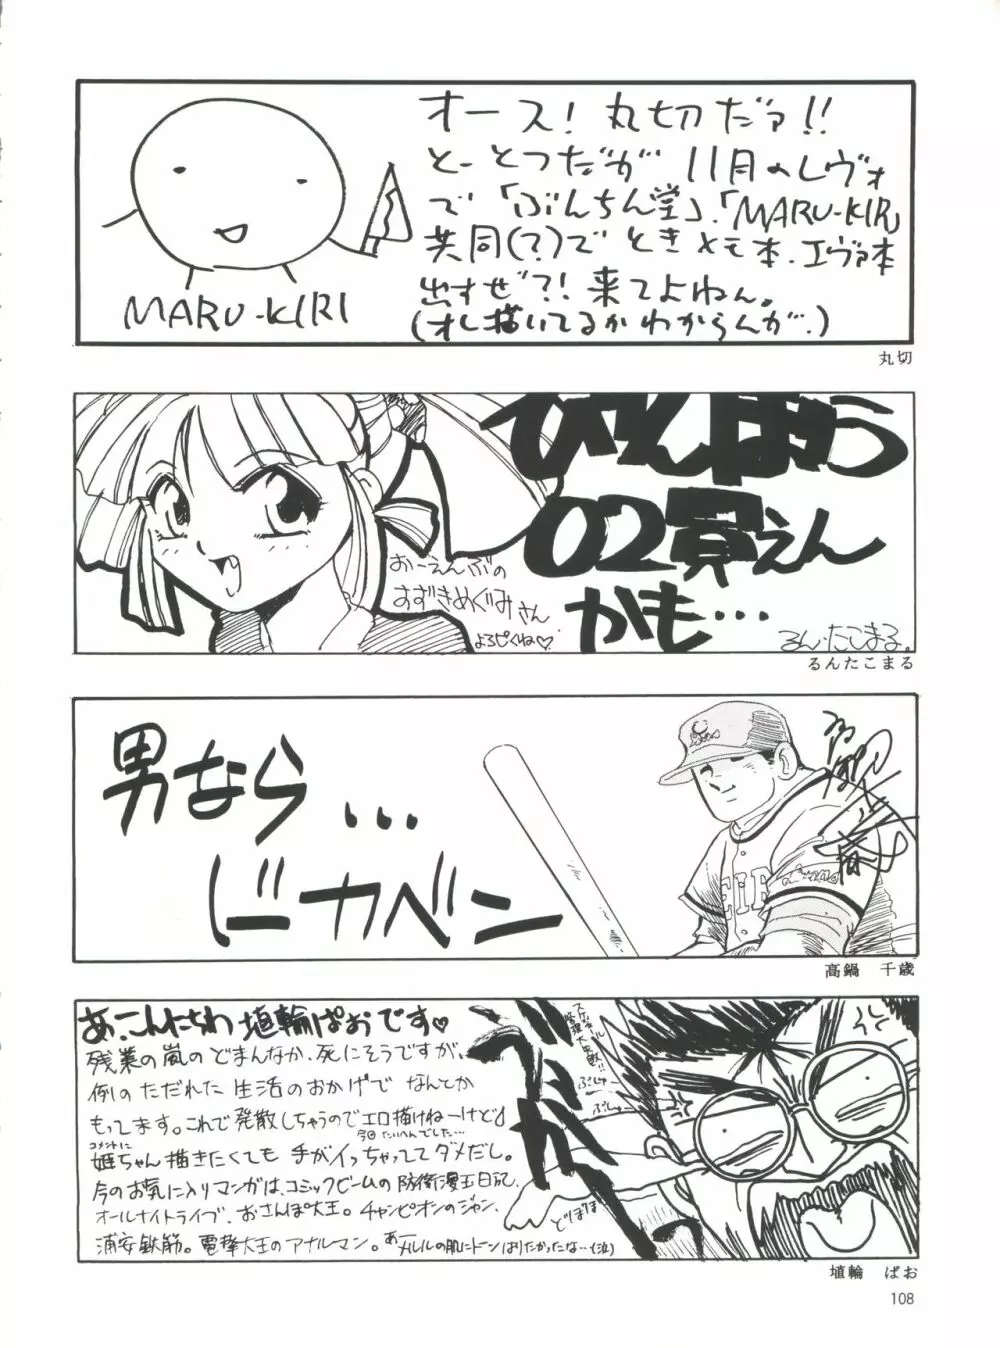 オース! 丸切だァ!!
とーとつだが 11月のレヴォ
で「ぶんちん堂」、「MARU-KIRI」
共同(?)で ときメモ本、エヴァ本
出すぜ?! 来てよねん。
(オレ描いてるかわからんが…)
MARU-KIRI
丸切
びんぼう
02買えん
かも…
おーえんぶの
すずきめぐみさん
よろぴくね♡
るん・たこまる。
るんたこまる
男なら…
ドカベン
高鍋 千歳
あ、こんにちわ 埴輪ぱおです♡
残業の嵐のどまんなか、死にそうですが、
例のただれた 生活のおかげで なんとか
もってます。これで発散しちゃうのでエロ描けねーけど♩
今回たいへんでした…
コメントに
姫ちゃん描きたくても 手がイっちゃっててダメだし。
今のお気に入りマンガは、コミックビームの防衛漫玉日記、
オールナイトライブ、おさんぽ大王。チャンピオンのジャン、
浦安鉄筋。電撃大王のアナルマン。あーメルルの肌にトーンはりたかったな…(泣)
ぶしゅ
ぶしゅ
どぼどぼ
埴輪 ぱお
108